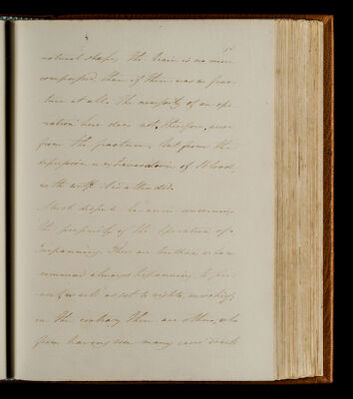 natural shape, the brain is no more
compressed, than if there was no frac-
ture at all. The necessity of an ope-
ration here does not, therefore, arise
from the fracture, but from the
depression or extravasation of Blood,
as the
Much dispute has arisen concerning
the propriety of the operation of
trepanning. There are
recommend always trepanning, to pre-
vent, as well as set to rights,
on the contrary there are others, who
from having seen many cases